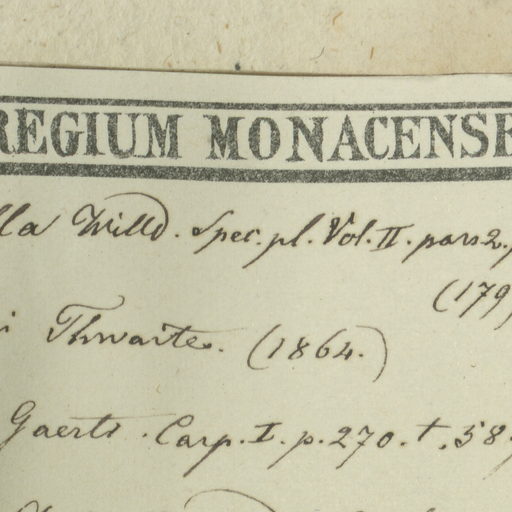 REGIUM MONACENSE
lla Willd. Spec. pl. Vol. II. pars 2.
(179
i Thwaites. (1864.)
Gaertn. Carp. I. p. 270. t. 58.